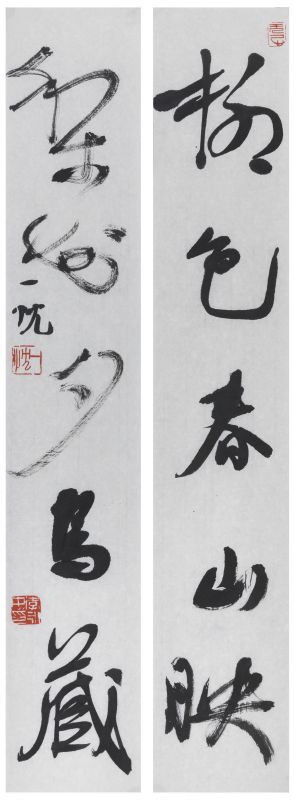 柳色春山映
梨花夕鸟藏
一忱